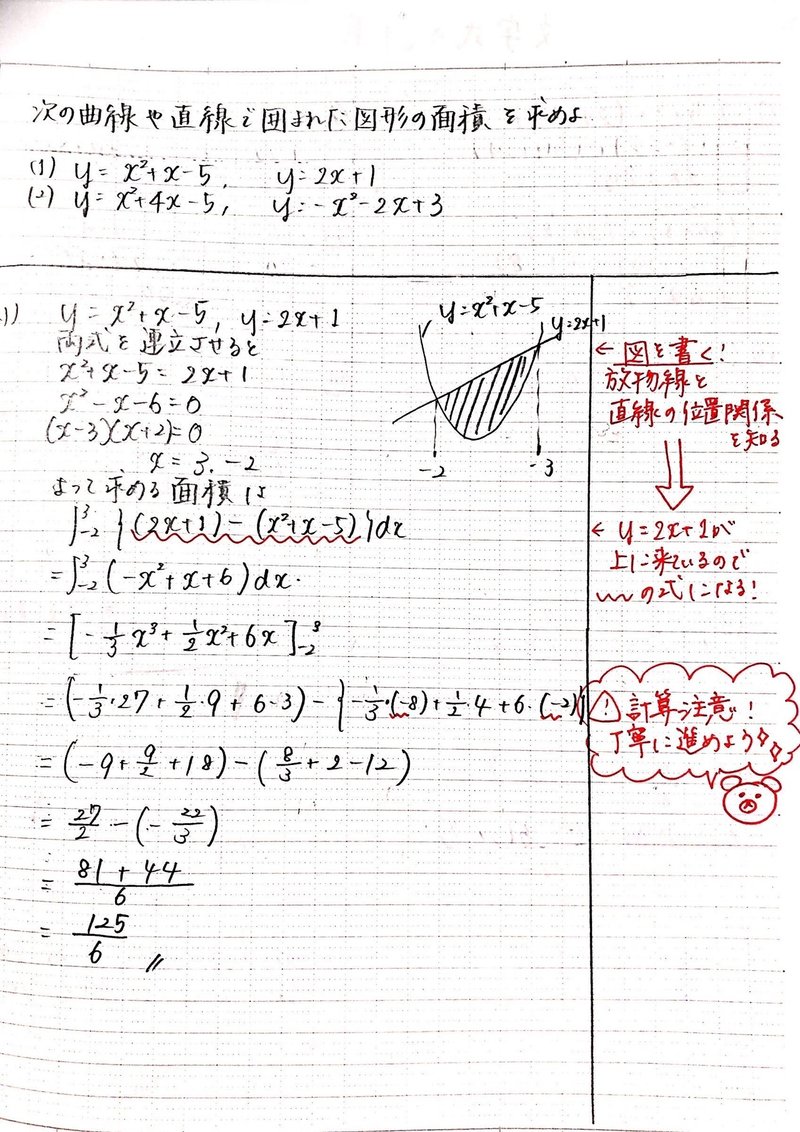 次の曲線や直線で囲まれた図形の面積を求めよ
(1) y = x²+x-5, y=2x+1
(2) y = x²+4x-5, y=-x²-2x+3
(1) y = x²+x-5, y=2x+1
両式を連立させると
x²+x-5 = 2x+1
x²-x-6=0
(x-3)(x+2)=0
x=3.-2
よって求める面積は
∫₋₂³{(2x+1)-(x²+x-5)}dx
=∫₋₂³(-x²+x+6)dx.
=[-1/3x³+1/2x²+6x]₋₂³
=(-1/3・27+1/2・9+6・3)-{-1/3・(-8)+1/2・4+6・(-2)}
=(-9+9/2+18)-(8/3+2-12)
=27/2-(-22/3)
=(81+44)/6
=125/6 //
y=x²+x-5
y=2x+1
-2 -3
← 図を書く!
放物線と
直線の位置関係
を知る
← y=2x+1が
上に来ているので
〰の式になる!
! 計算注意!
丁寧に進めよう